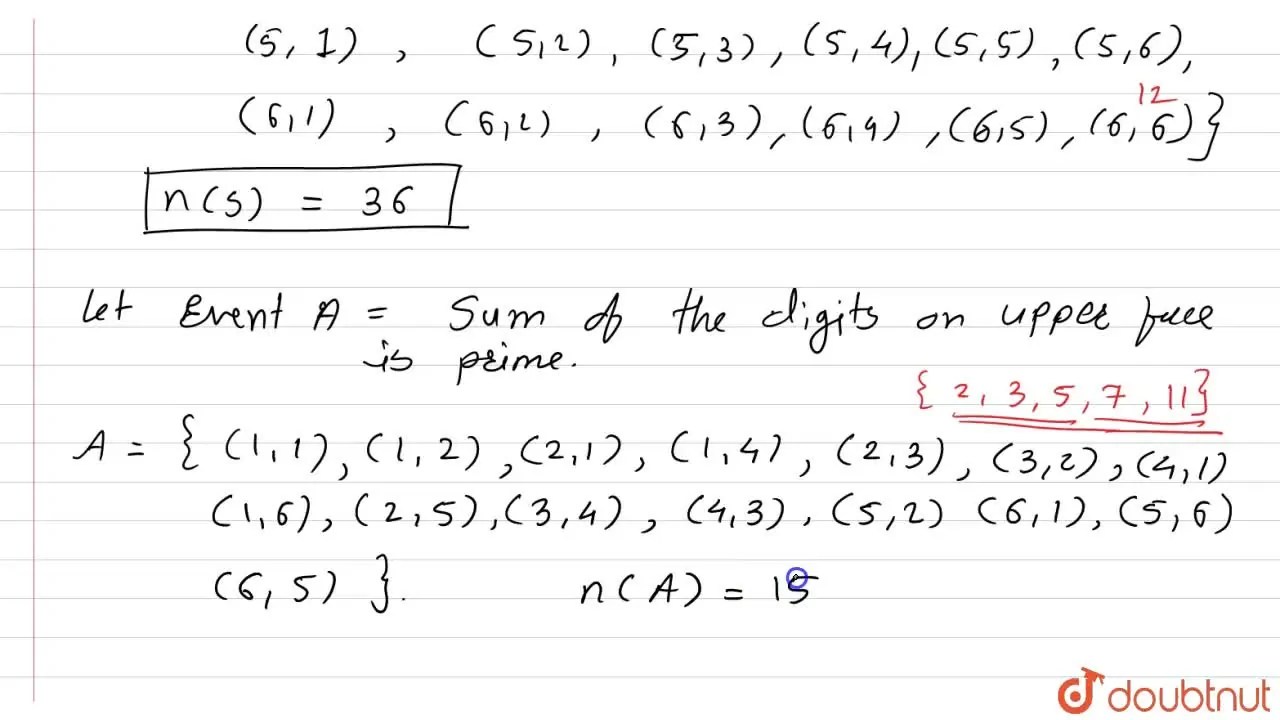 (5, 1) , (5,2), (5,3), (5,4), (5,5), (5,6),
12
(6,1) , (6,2) , (6,3), (6,4) , (6,5), (6,6)}
n(s) = 36
Let Event A = Sum of the digits on upper face
is prime.
{ 2, 3, 5, 7, 11}
A = { (1,1), (1,2) , (2,1), (1,4) , (2,3) , (3,2) , (4,1)
(1,6), (2,5), (3,4) , (4,3) , (5,2) (6,1), (5,6)
(6,5) }. n(A) = 15
doubtnut